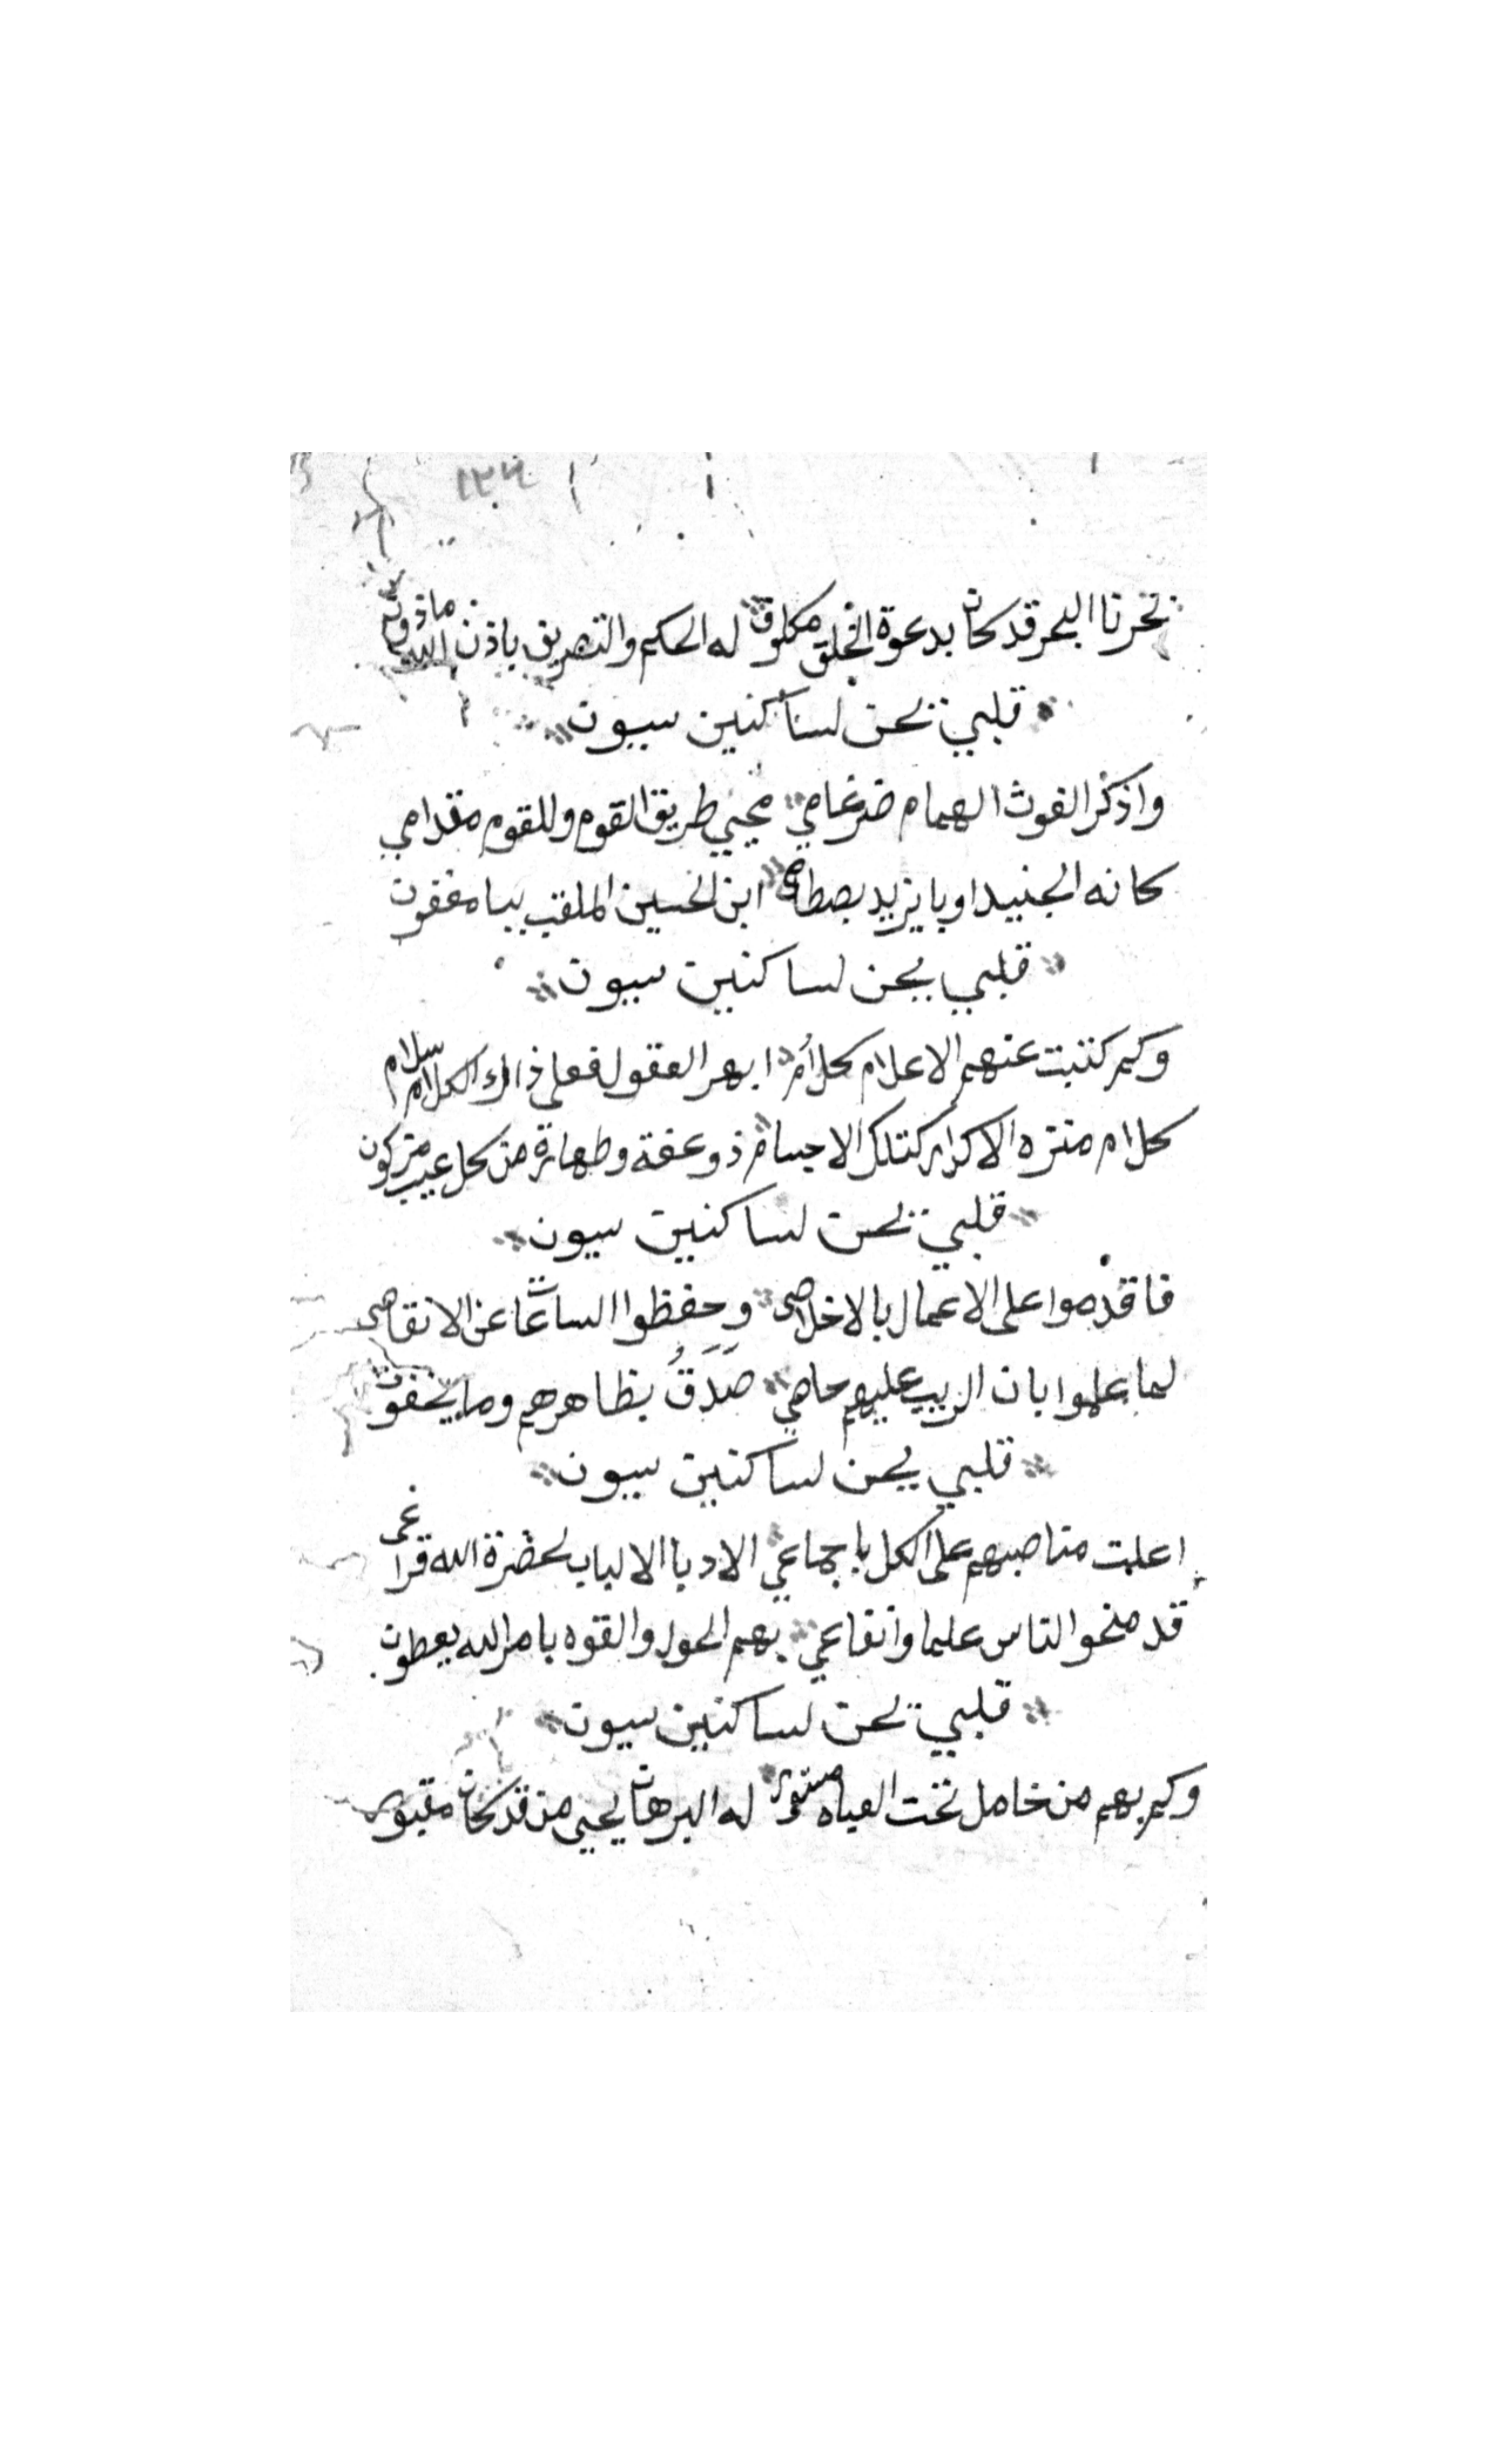 ١٢٩
نخرنا البحر قد كان بدعوة الخلق مكلوف له الحكم والتصريف باذن الله ماذون
قلبي يحن لساكنين سيون
واذكر الغوث الهمام ضرغامي محيي طريق القوم وللقوم مقدامي
كانه الجنيد او بايزيد بصطامي ابن الحسين الملقب ببامغفون
قلبي يحن لساكنين سيون
وكم كتبت عنهم الاعلام كلام ابهر العقول فعلى ذاك الكلام سلام
كلام منزه الاكرام كتلك الاجسام ذو عفة وطهارة من كل عيب مزكون
قلبي يحن لساكنين سيون
فاقدموا على الاعمال بالاخلاصي وحفظوا الساعات عن الانقاصي
لما علموا بان الريب عليهم حاصي صَدَقُ بظاهرهم وما يخفون
قلبي يحن لساكنين سيون
اعلت مناصبهم على الكل باجماعي الادبا الالباب لحضرة الله قراعي
قد منحو الناس علما وانفاعي بهم الحول والقوه بامر الله يعطون
قلبي يحن لساكنين سيون
وكم بهم من خامل تحت العباه مستور له البرهان يحيى من قد كان مقبور